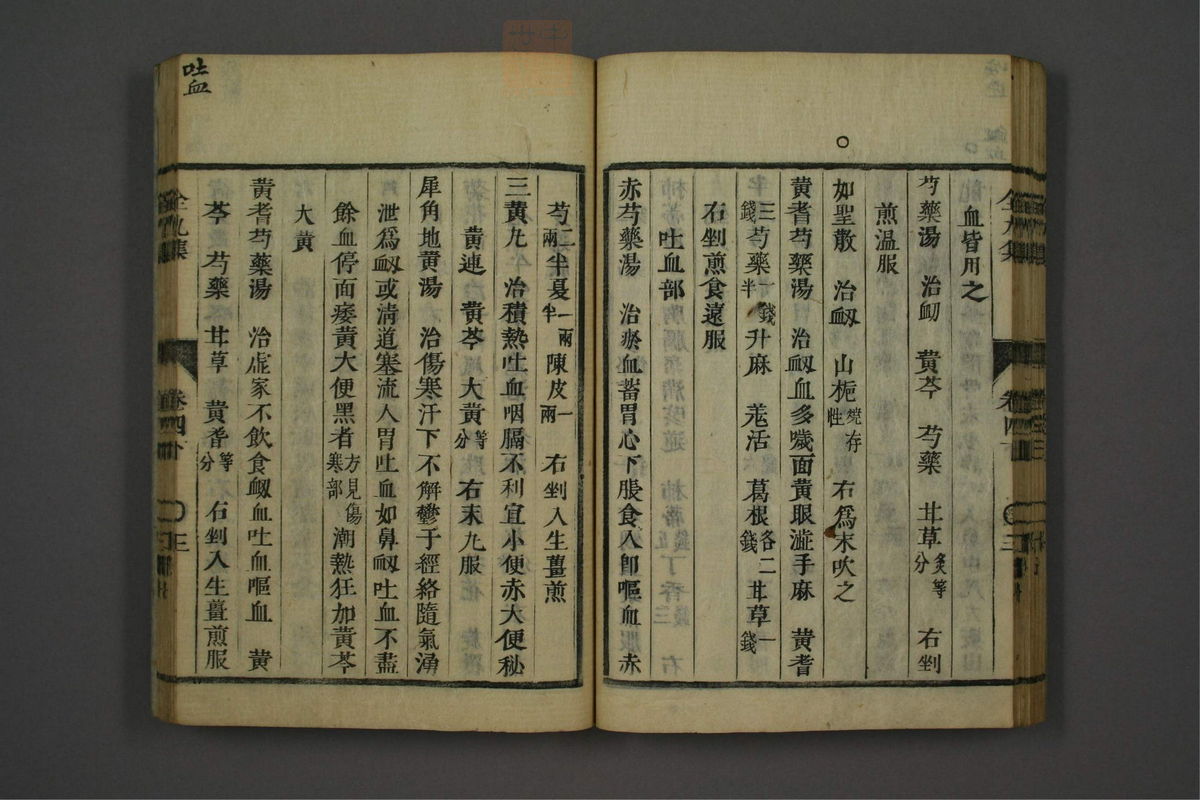 血皆用之
芍藥湯 治衂 黄芩 芍藥 甘草炙等分 右剉
煎温服
如聖散 治衂 山梔燒存性 右爲末吹之
黄耆芍藥湯 治衂血多歲面黄眼澁手麻 黄耆
三錢芍藥一錢半升麻 羌活 葛根各二錢甘草一錢
右剉煎食遠服
吐血部
赤芍藥湯 治瘀血蓄胃心下脹食入卽嘔血 赤
芍二兩半夏一兩半陳皮一兩 右剉入生薑煎
三黄丸 治積熱吐血咽膈不利宜小便赤大便秘
黄連 黄芩 大黄等分 右末丸服
犀角地黄湯 治傷寒汗下不解鬱于經絡隨氣湧
泄爲衂或淸道塞流入胃吐血如鼻衂吐血不盡
餘血停面痿黄大便黑者方見傷寒部潮熱狂加黄芩
大黄
黄耆芍藥湯 治虛家不飲食衂血吐血嘔血 黄
芩 芍藥 甘草 黄耆等分 右剉入生薑煎服
全九集
卷四
三
吐血